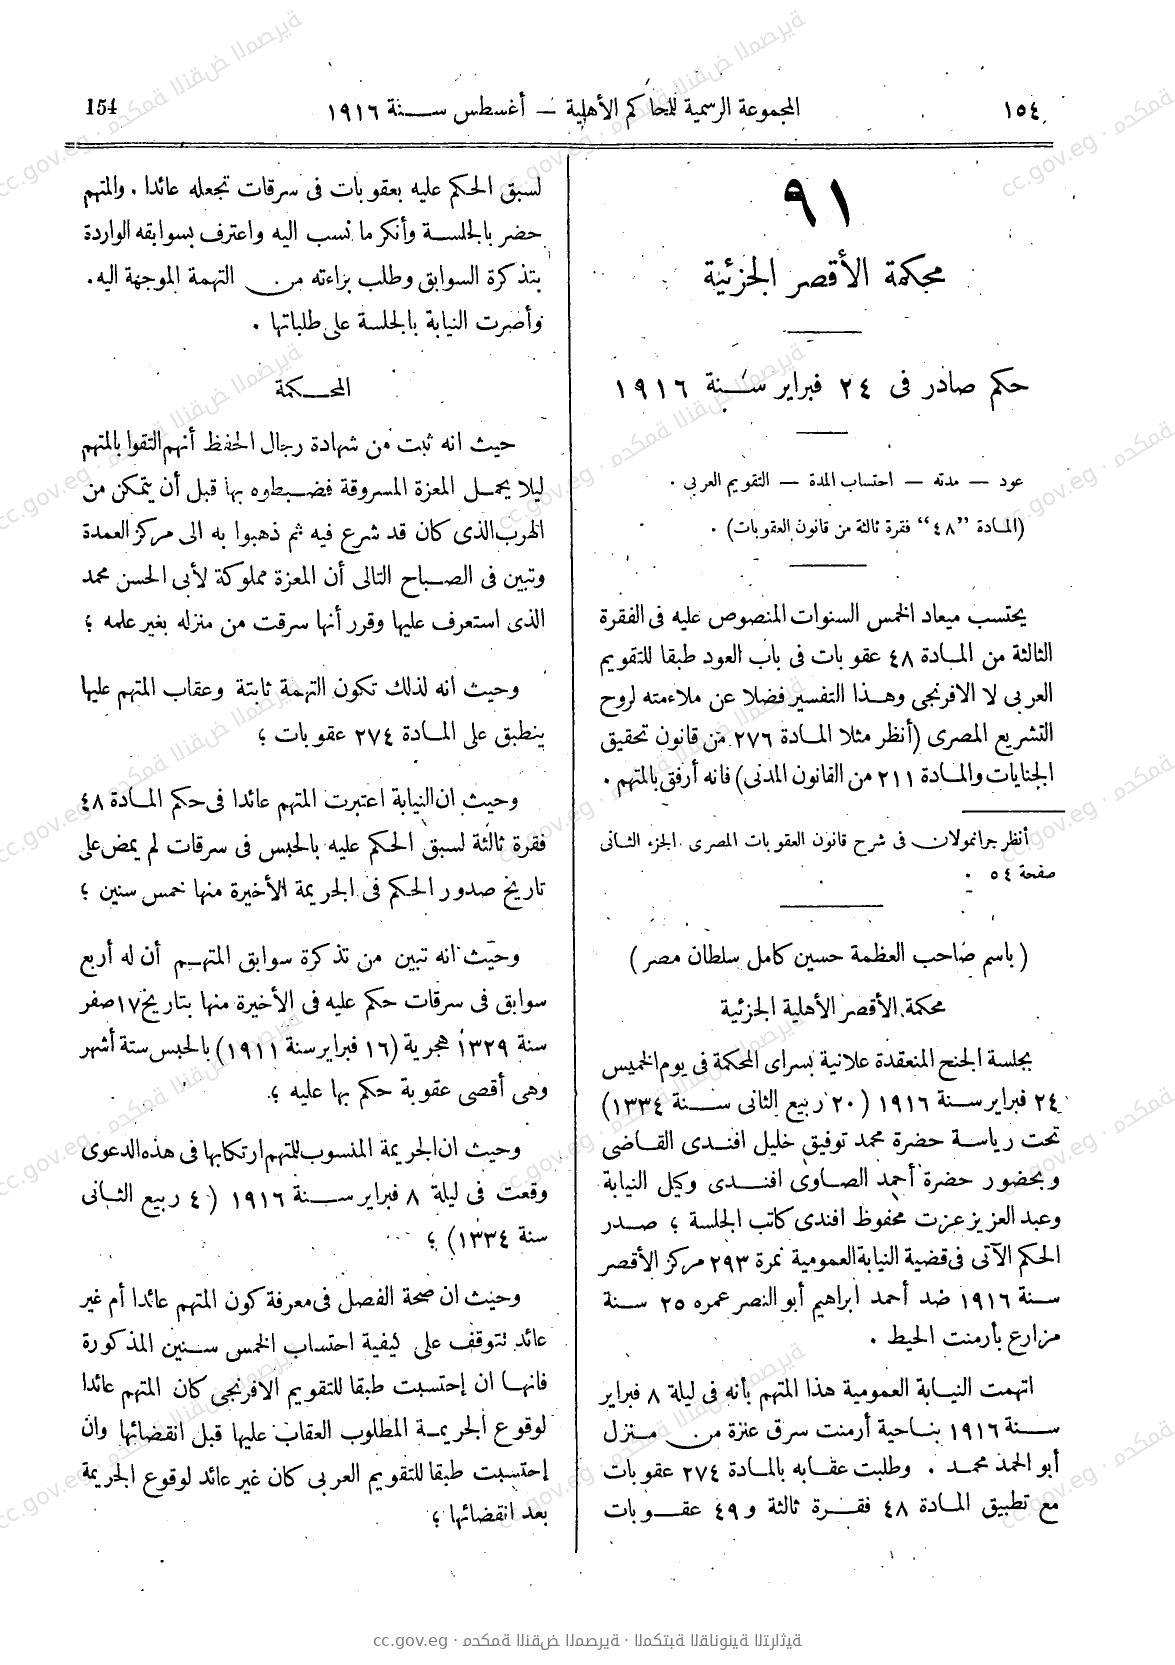 ١٥٤
المجموعة الرسمية للمحاكم الأهلية — أغسطس سنة ١٩١٦
154
٩١
محكمة الأقصر الجزئية
حكم صادر فى ٢٤ فبراير سنة ١٩١٦
عود — مدته — احتساب المدة — التقويم العربى .
(المادة ”٤٨“ فقرة ثالثة من قانون العقوبات) .
يحتسب ميعاد الخمس السنوات المنصوص عليه فى الفقرة
الثالثة من المادة ٤٨ عقوبات فى باب العود طبقا للتقويم
العربى لا الافرنجى وهذا التفسير فضلا عن ملاءمته لروح
التشريع المصرى (أنظر مثلا المادة ٢٧٦ من قانون تحقيق
الجنايات والمادة ٢١١ من القانون المدنى) فانه أرفق بالمتهم .
أنظر جرانمولان فى شرح قانون العقوبات المصرى الجزء الثانى
صفحة ٥٤ .
( باسم صاحب العظمة حسين كامل سلطان مصر )
محكمة الأقصر الأهلية الجزئية
بجلسة الجنح المنعقدة علانية بسراى المحكمة فى يوم الخميس
٢٤ فبراير سنة ١٩١٦ (٢٠ ربيع الثانى سنة ١٣٣٤)
تحت رياسة حضرة محمد توفيق خليل افندى القاضى
وبحضور حضرة أحمد الصاوى افندى وكيل النيابة
وعبد العزيز عزت محفوظ افندى كاتب الجلسة ؛ صدر
الحكم الآتى فى قضية النيابة العمومية نمرة ٢٩٣ مركز الأقصر
سنة ١٩١٦ ضد أحمد ابراهيم أبو النصر عمره ٢٥ سنة
مزارع بأرمنت الحيط .
اتهمت النيابة العمومية هذا المتهم بأنه فى ليلة ٨ فبراير
سنة ١٩١٦ بناحية أرمنت سرق عنزة من منزل
أبو الحمد محمد . وطلبت عقابه بالمادة ٢٧٤ عقوبات
مع تطبيق المادة ٤٨ فقرة ثالثة و ٤٩ عقوبات
لسبق الحكم عليه بعقوبات فى سرقات تجعله عائدا . والمتهم
حضر بالجلسة وأنكر ما نسب اليه واعترف بسوابقه الواردة
بتذكرة السوابق وطلب براءته من التهمة الموجهة اليه .
وأصرت النيابة بالجلسة على طلباتها .
المحكمة
حيث انه ثبت من شهادة رجال الحفظ أنهم التقوا بالمتهم
ليلا يحمل المعزة المسروقة فضبطوه بها قبل أن يتمكن من
الهرب الذى كان قد شرع فيه ثم ذهبوا به الى مركز العمدة
وتبين فى الصباح التالى أن المعزة مملوكة لأبى الحسن محمد
الذى استعرف عليها وقرر أنها سرقت من منزله بغير علمه ؛
وحيث انه لذلك تكون التهمة ثابتة وعقاب المتهم عليها
ينطبق على المادة ٢٧٤ عقوبات ؛
وحيث ان النيابة اعتبرت المتهم عائدا فى حكم المادة ٤٨
فقرة ثالثة لسبق الحكم عليه بالحبس فى سرقات لم يمض على
تاريخ صدور الحكم فى الجريمة الأخيرة منها خمس سنين ؛
وحيث انه تبين من تذكرة سوابق المتهم أن له أربع
سوابق فى سرقات حكم عليه فى الأخيرة منها بتاريخ ١٧ صفر
سنة ١٣٢٩ هجرية (١٦ فبراير سنة ١٩١١) بالحبس ستة أشهر
وهى أقصى عقوبة حكم بها عليه ؛
وحيث ان الجريمة المنسوب للمتهم ارتكابها فى هذه الدعوى
وقعت فى ليلة ٨ فبراير سنة ١٩١٦ ( ٤ ربيع الثانى
سنة ١٣٣٤) ؛
وحيث ان صحة الفصل فى معرفة كون المتهم عائدا أم غير
عائد تتوقف على كيفية احتساب الخمس سنين المذكورة
فانها ان إحتسبت طبقا للتقويم الافرنجى كان المتهم عائدا
لوقوع الجريمة المطلوب العقاب عليها قبل انقضائها وان
إحتسبت طبقا للتقويم العربى كان غير عائد لوقوع الجريمة
بعد انقضائها ؛
cc.gov.eg · محكمة النقض المصرية · المكتبة القانونية التراثية